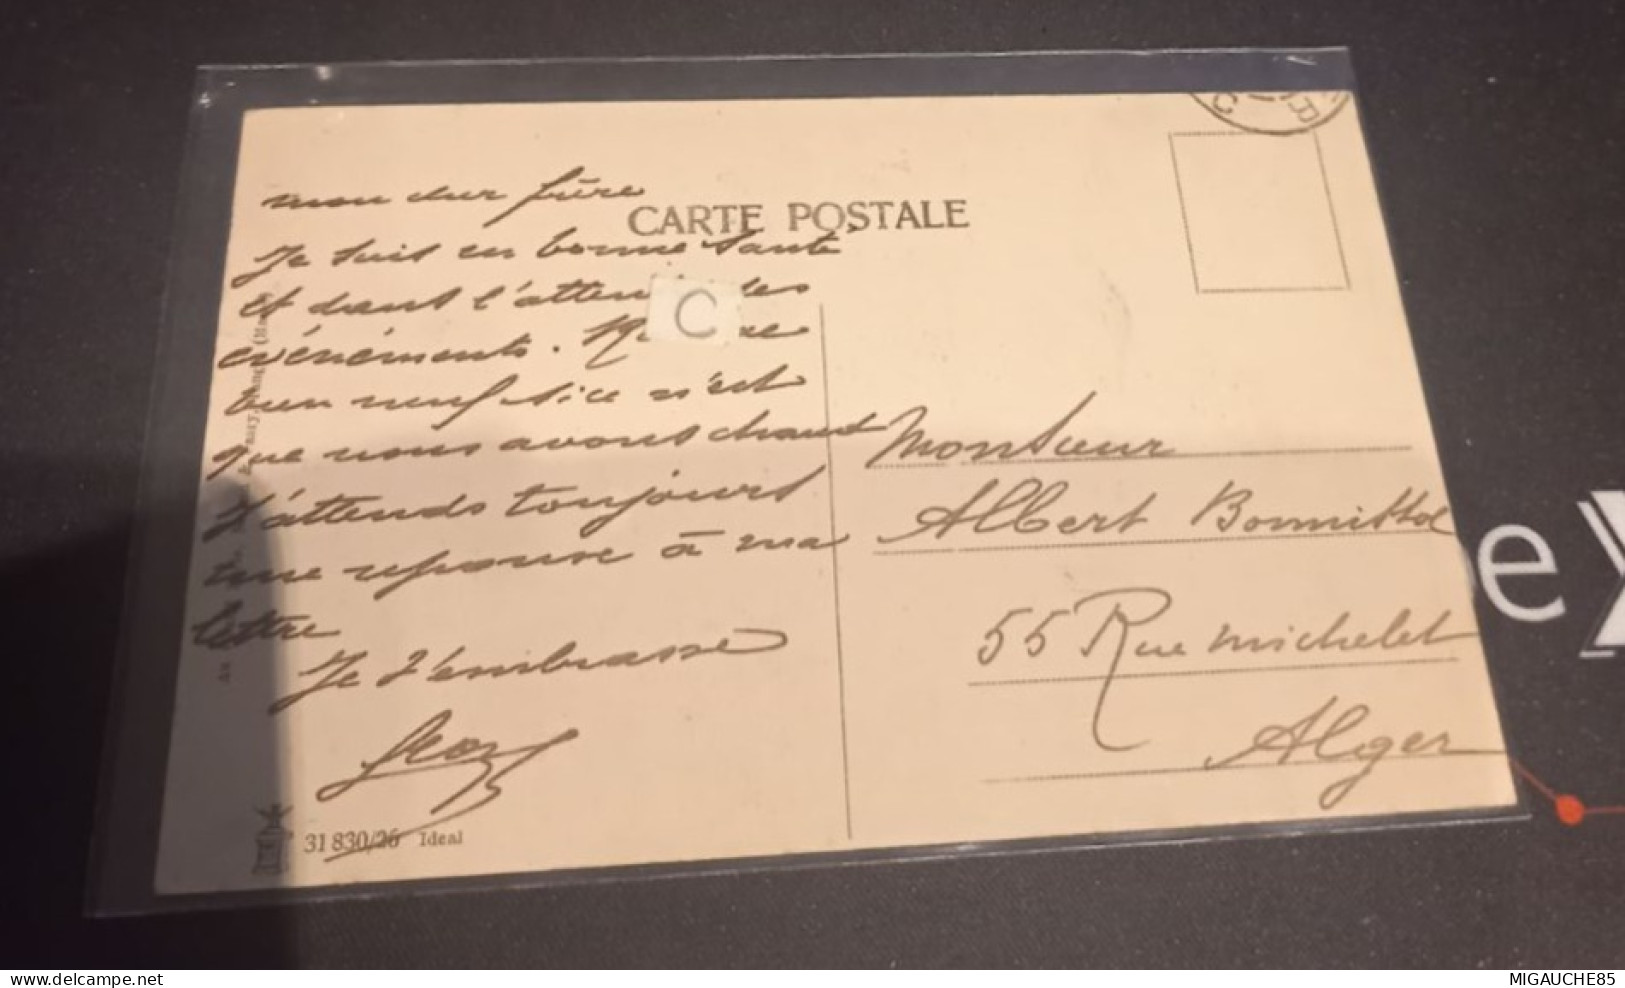 CARTE POSTALE
mon cher frère
Je suis en bonne santé
et dans l'attente des
evénéments.
bien neuf si ce n'est
que nous avons chaud
J'attends toujours
une reponse à ma
lettre
Je t'embrasse
C
Monsieur
Albert
55 Rue Michelet
Alger
31 830/26 Ideal
delcampe.net
MIGAUCHE85